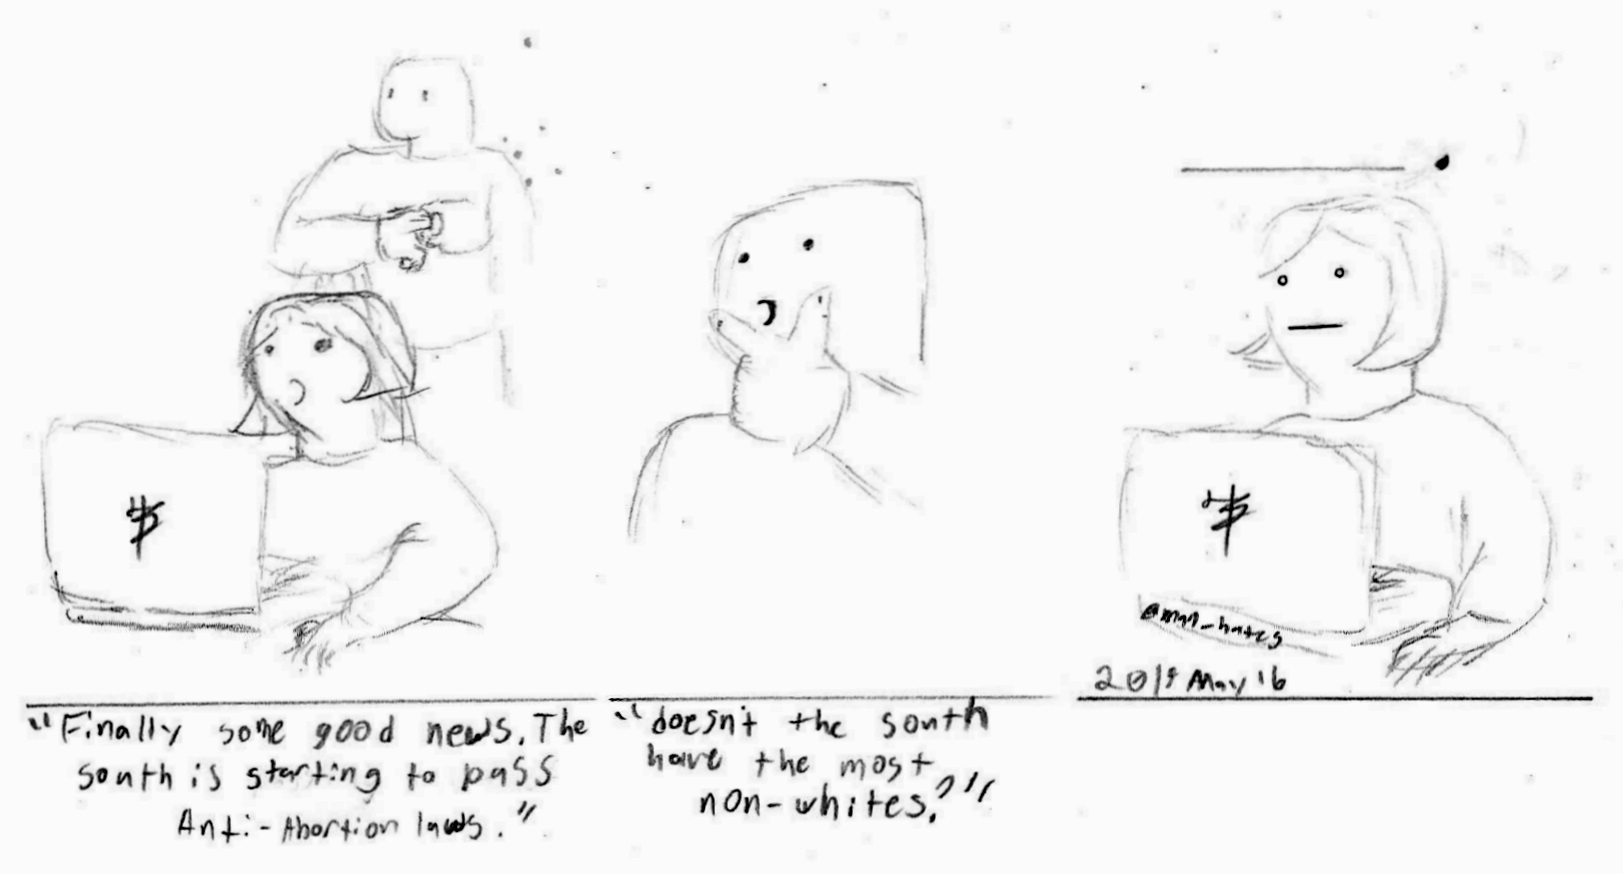 "Finally some good news. The
south is starting to pass
Anti-Abortion laws."
"doesn't the south
have the most
non-whites?"
2019 May 16